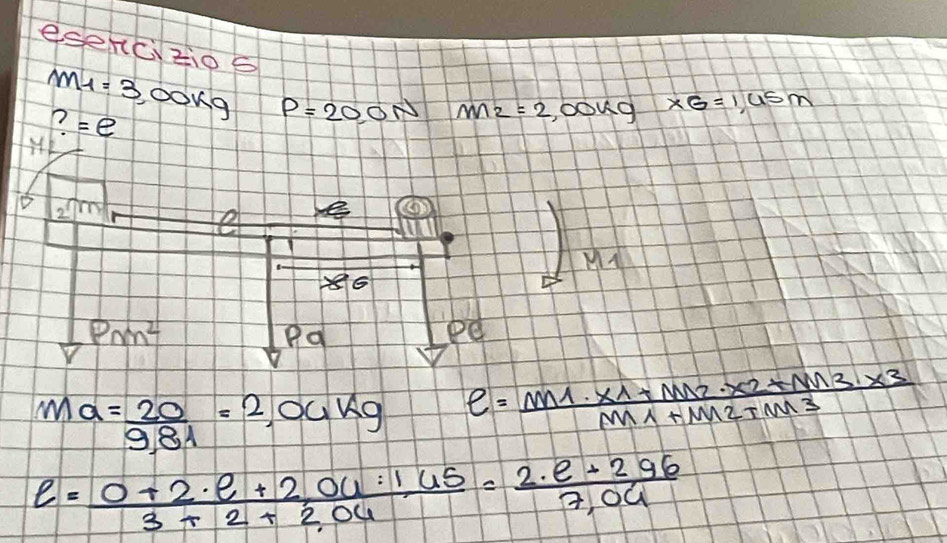 esercizio 5
m1 = 3,00Kg P = 20,0N m2 = 2,00Kg xG = 1,45m
? = e
2m e e
M1
xG
Pm2 Pa Pe
ma = 20 / 9,81 = 2,04Kg e = m1 · x1 + m2 · x2 + m3 · x3 / m1 + m2 + m3
e = 0 + 2 · e + 2,04 : 1,45 / 3 + 2 + 2,04 = 2 · e + 2,96 / 7,04